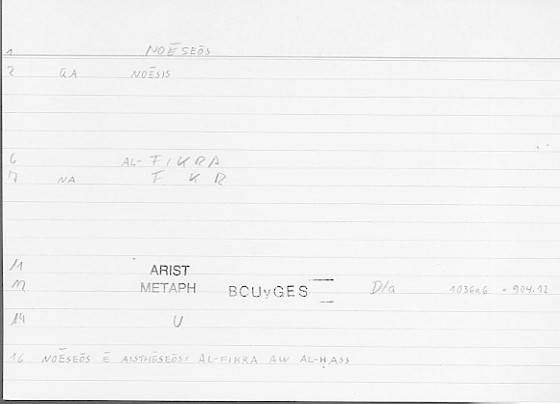 1 NOĒSEŌS
2 GA NOĒSIS
6 AL-FIKRA
7 NA F K R
11 ARIST
12 METAPH BOUyGES D/a 1036a6 • 904.12
14 U
16 NOĒSEŌS Ē AISTHĒSEŌS: AL-FIKRA AW AL-ḤASS